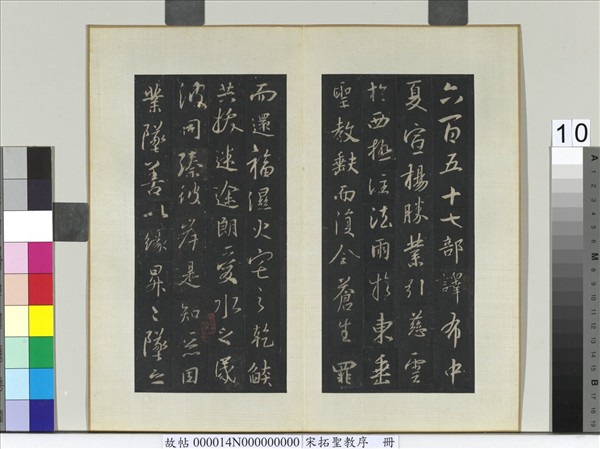 六百五十七部譯布中
夏宣楊勝業引慈雲
於西極注法雨於東垂
聖教缺而復全蒼生罪
而還福濕火宅之乾燄
共拔迷途朗愛水之昏
波同臻彼岸是知惡因
業墜善以緣昇〻墜之
10
故帖 000014N000000000 宋拓聖教序 冊